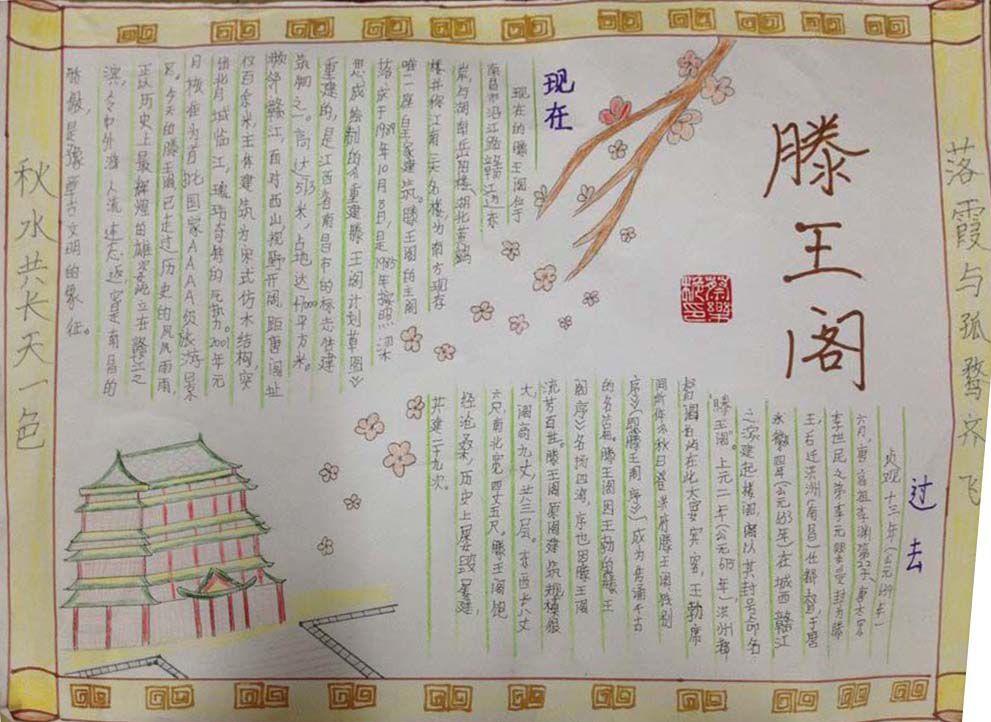 滕王阁
落霞与孤鹜齐飞
秋水共长天一色
过去
贞观十三年(公元639年)
六月,唐高祖李渊第22子、唐太宗
李世民之弟李元婴受封为滕
王,后迁洪州(南昌)任都督,于唐
永徽四年(公元653年)在城西赣江
之滨建起楼阁,阁以其封号命名
“滕王阁”。上元二年(公元675年),洪州都
督阎伯屿在此大宴宾客,王勃席
间所作《秋日登洪府滕王阁饯别
序》(即《滕王阁序》)成为传诵千古
的名篇。滕王阁因王勃的《滕王
阁序》名扬四海,序也因滕王阁
流芳百世。滕王阁原阁建筑规模很
大,阁高九丈,共三层。东西长八丈
六尺,南北宽四丈五尺。滕王阁饱
经沧桑,历史上屡毁屡建,
共建二十九次。
现在
现在的滕王阁位于
南昌市沿江路赣江边东
岸,与湖南岳阳楼、湖北黄鹤
楼并称江南三大名楼,为南方现存
唯一一座皇家建筑。滕王阁的主阁
落成于1989年10月8日,是1985年按照梁
思成绘制的《重建滕王阁计划草图》
重建的,是江西省南昌市的标志性建
筑物之一。高达57.5米,占地达47000平方米。
濒邻赣江,面对西山,视野开阔,距唐阁址
仅百余米,主体建筑为宋式仿木结构,突
出背城临江,瑰玮奇特的气势。2001年元
月核准为首批国家AAAA级旅游景
区。今天的滕王阁已走过历史的风风雨雨,
正以历史上最辉煌的雄姿屹立在赣江之
滨,令中外游人流连忘返,它是南昌的
骄傲,是豫章古文明的象征。